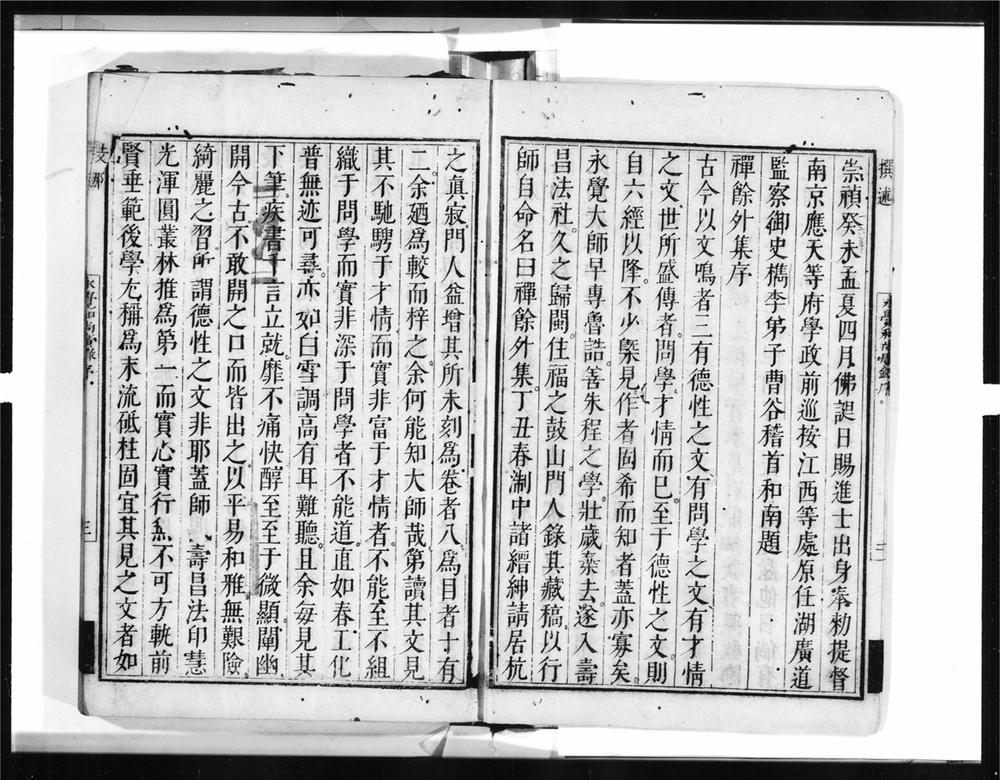 撰述
崇禎癸未孟夏四月佛誕日賜進士出身奉勑提督
南京應天等府學政前巡按江西等處原任湖廣道
監察御史檇李弟子曹谷稽首和南題
禪餘外集序
古今以文鳴者三有德性之文有問學之文有才情
之文世所盛傳者問學才情而已至于德性之文則
自六經以降不少槩見作者固希而知者蓋亦寡矣
永覺大師早專魯誥善朱程之學壯歲棄去遂入壽
昌法社久之歸閩住福之鼓山門人錄其藏稿以行
師自命名曰禪餘外集丁丑春淛中諸縉紳請居杭
之眞寂門人益增其所未刻爲卷者八爲目者十有
二余廼爲較而梓之余何能知大師哉第讀其文見
其不馳騁于才情而實非富于才情者不能至不組
織于問學而實非深于問學者不能道直如春工化
普無迹可尋亦如白雪調高有耳難聽且余每見其
下筆疾書千言立就靡不痛快醇至至于微顯闡幽
開今古不敢開之口而皆出之以平易和雅無艱險
綺麗之習所謂德性之文非耶蓋師 壽昌法印慧
光渾圓叢林推爲第一而實心實行無不可方軌前
賢垂範後學允稱爲末流砥柱固宜其見之文者如
支那
三